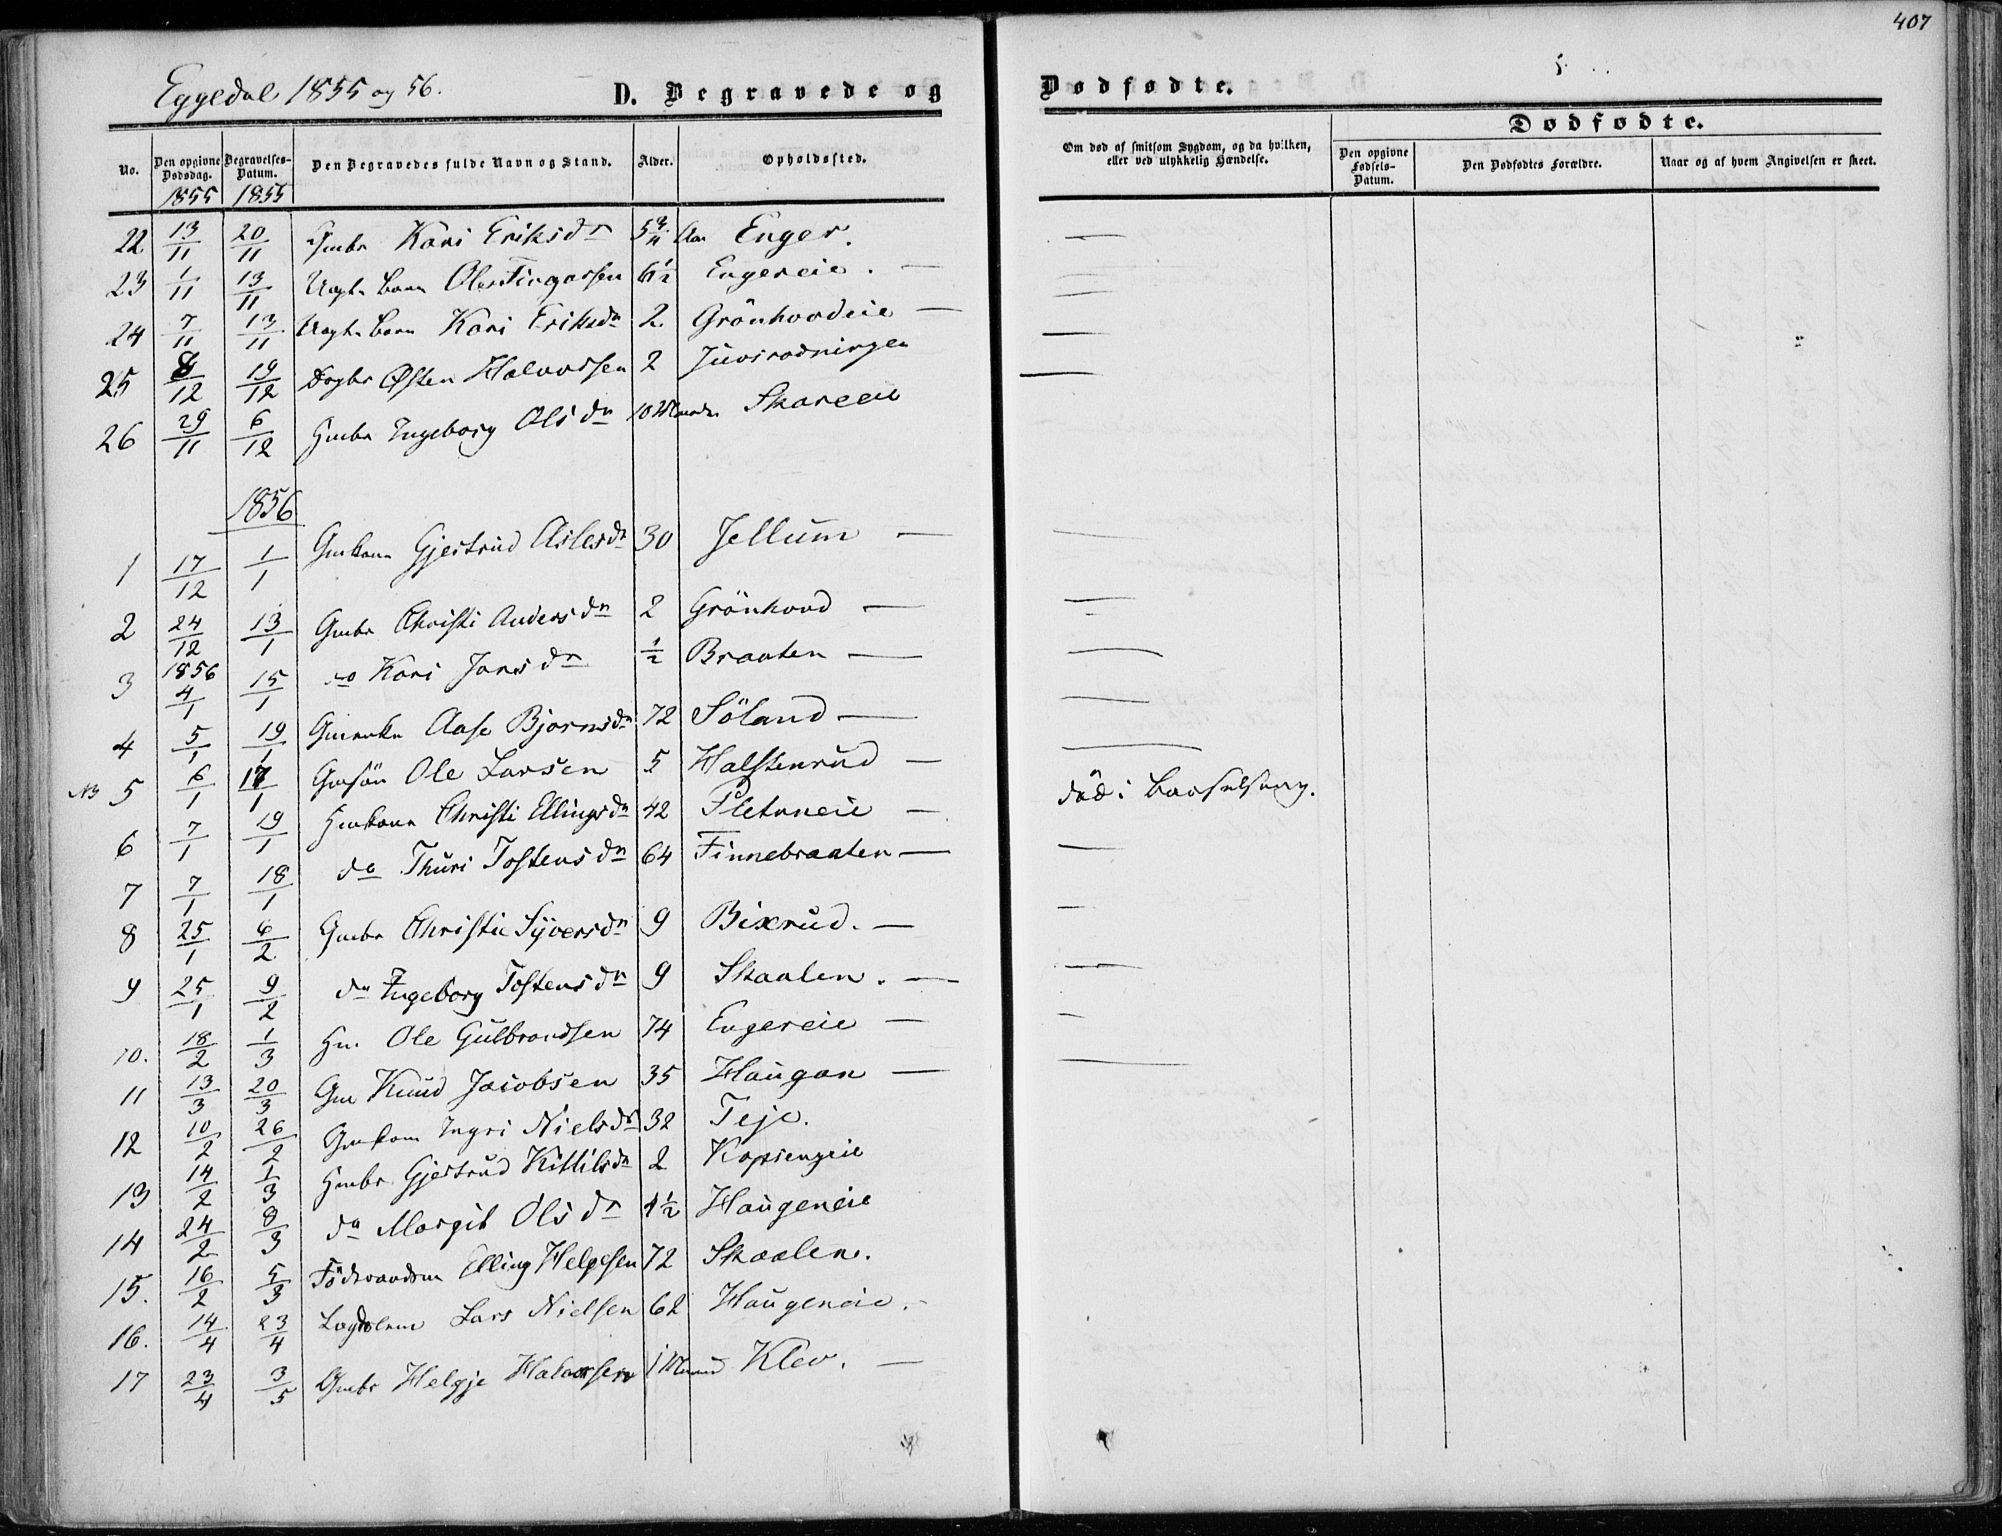 407
Eggedal 1855 og 56.
D. Begravede og Dødfødte.
Dødfødte.
No. Den opgivne Dødsdag. Begravelses-Datum. Den Begravedes fulde Navn og Stand. Alder. Opholdssted. Om død af smitsom Sygdom, og da hvilken, eller ved ulykkelig Hændelse. Den opgivne Fødsels-Datum. Den Dødfødtes Forældre. Naar og af hvem Angivelsen er skeet.
1855 1855
22 13/11 20/11 Gmbr Kari Eriksdr 5 3/4 Aar Enger. —
23 1/11 13/11 Ungk. Barn Ole Fingarssen 6 1/2 Engereie. —
24 7/11 13/11 Ungk. Barn Kari Eriksdr 2 Grönhovdeie —
25 8/12 19/12 Dagbr Østen Halvorssen 2 Juvsrodningen —
26 29/11 6/12 Hmbr Ingeborg Olsdr 10 Maaneder Skareeie
1856
1 17/12 1/1 Gmkone Gjertrud Aslesdr 30 Jellum —
2 24/12 13/1 Gmbr Christi Andersdr 2 Grönhovd —
1856
3 4/1 15/1 do Kari Jonsdr 1/2 Braaten —
4 5/1 19/1 Gmenke Aase Bjørnsdr 72 Söland —
NB 5 6/1 17/1 Gmsön Ole Larsen 5 Halstenrud —
6 7/1 19/1 Hmkone Christi Ellingsdr 42 Sletaneie — död i Barselseng.
7 7/1 18/1 do Thuri Tostensdr 64 Finnebraaten —
8 25/1 6/2 Gmbr Christie Syversdr 9 Bixrud. —
9 25/1 9/2 do Ingeborg Tostensdr 9 Skaalen. —
10. 18/2 1/3 Hm. Ole Gulbrandsen 74 Engereie —
11 13/3 20/3 Gm Knud Jacobsen 35 Haugan —
12 10/2 26/2 Gmkone Ingri Nielsdr 32 Teje.
13 14/2 1/3 Hmbr. Gjertrud Kittilsdr 2 Kopsengeie
14 24/2 8/3 do Margit Olsdr 4 1/2 Haugeneie
15. 16/2 5/3 Föderaadsm Elling Helgesen 72 Skaalen.
16. 14/4 23/4 Lægdslem Lars Nielsen 62 Haugeneie. -
17 23/4 3/5 Gmbr Helgje Halvorsen 1 Maaned Klev. —